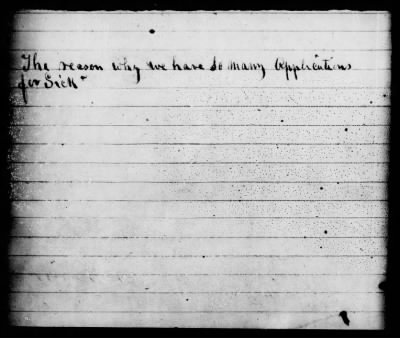 The reason why we have so many Applications
for Sick